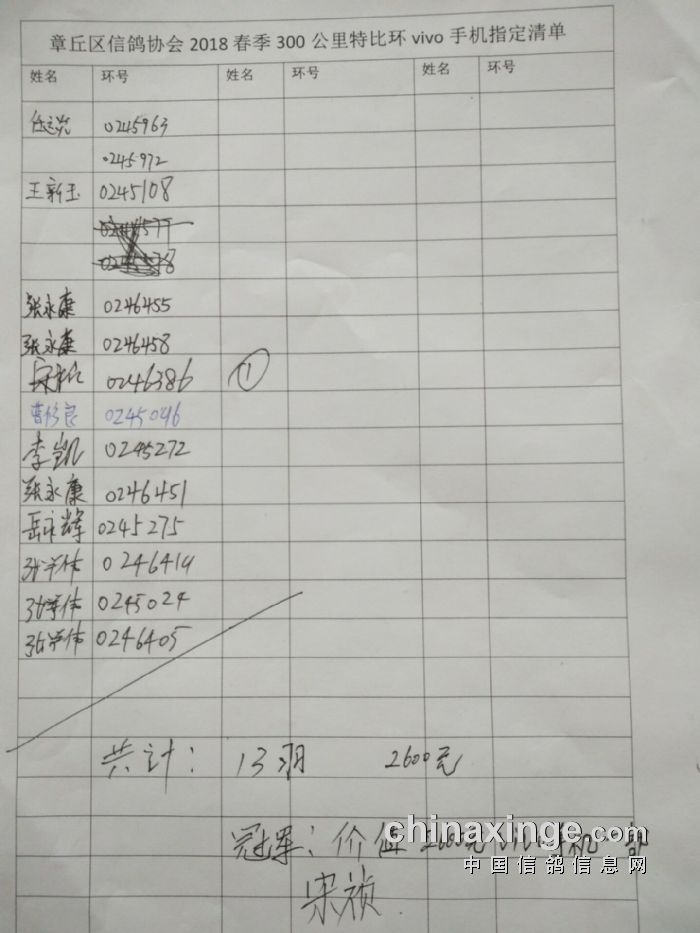 章丘区信鸽协会2018春季300公里特比环vivo手机指定清单
姓名 环号 姓名 环号 姓名 环号
0245963
0245972
王新玉 0245108
张永康 0246455
张永康 0246458
0246386 ①
曹修良 0245046
李凯 0245272
张永康 0246451
岳永辉 0245275
0246414
0245024
0246405
共计: 13羽 2600元
冠军: 价值
宋祯
chinaxinge.com
中国信鸽信息网